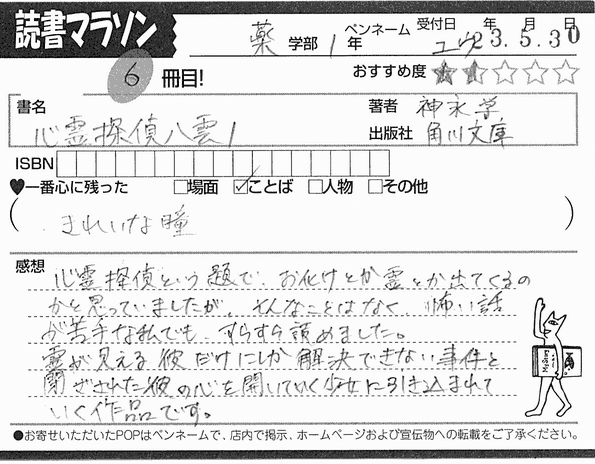 読書マラソン
薬 学部 1 年 ペンネーム ユウ 受付日 23年5月30日
6 冊目! おすすめ度 ★★☆☆☆
書名 心霊探偵八雲1
著者 神永学
出版社 角川文庫
ISBN
♥一番心に残った □場面 ☑ことば □人物 □その他
( きれいな瞳 )
感想
心霊探偵という題で、お化けとか霊とか出てくるの
かと思っていましたが、そんなことはなく 怖い話
が苦手な私でも、すらすら読めました。
霊が見える彼だけにしか解決できない事件と
閉ざされた彼の心を開いていく少女に引き込まれて
いく作品です。
●お寄せいただいたPOPはペンネームで、店内で掲示、ホームページおよび宣伝物への転載をご了承ください。